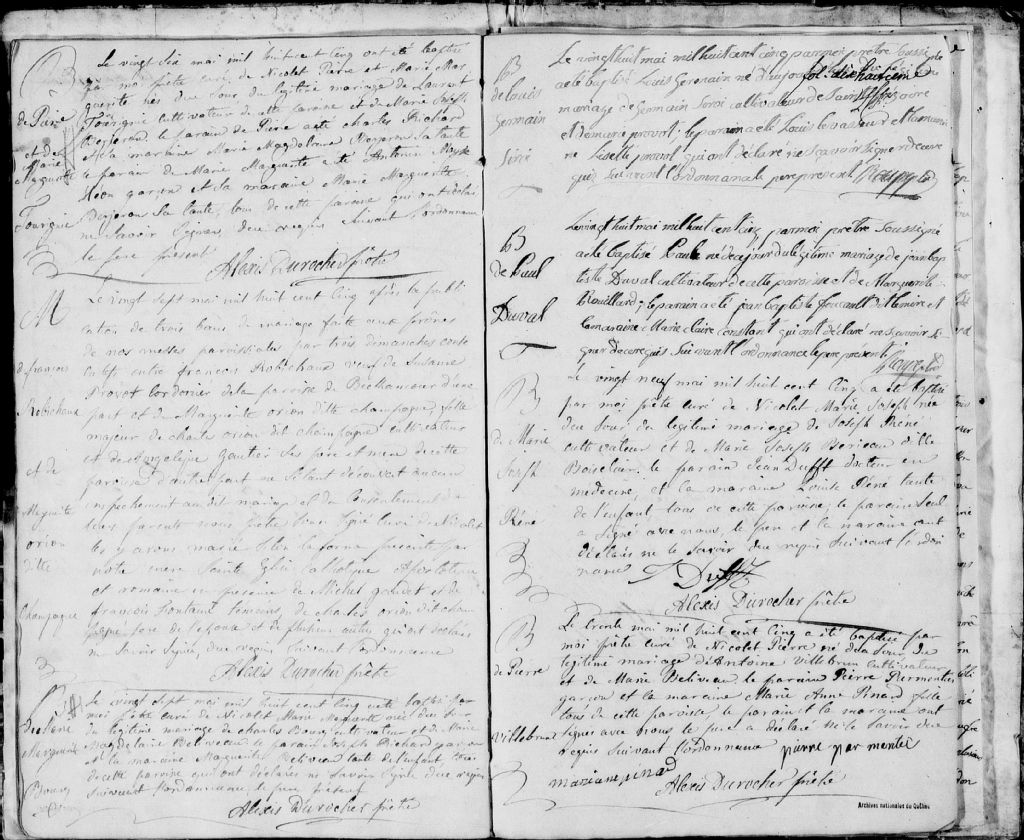 B
de Piere
et de
Marie
Marguerite
Fourgné
Le vingt six mai mil huit cent cinq ont été baptisé
par moi prêtre curé de Nicolet Pierre et Marie Mar
guerite nés du jour du legitime mariage de Laurent
Fourgné cultivateur de cette paroise et de Marie Joseph
Berjeron le parain de Piere a été Charles Richard
et la maraine Marie Magdelenne Berjeron sa tante
le parain de Marie Marguerite a été Antoine
garçon et sa maraine Marie Marguerite
Berjeron sa tante, tous de cette paroise qui ont déclaré
ne savoir signer, de ce requis suivant l'ordonnance
le pere présent
Alexis Durocher prêtre
M
de françois
Robichaux
et de
Marguerite
orion
ditte
Champagne
Le vingt sept mai mil huit cent cinq après la publi
cation de trois bans de mariage faite aux prônes
de nos messes paroissiales par trois dimanches consé
cutifs entre francois Robichaux veuf de Susanne
Provot cordonier de la paroise de Béchancour d'une
part et de Marguerite orion ditte champagne, fille
majeur de charle orion dit champagne cultivateur
et de Angelique Gautier ses père et mere de cette
paroise d'autre part ne s'étant découvert aucun
empechement au dit mariage et du consentement de
leurs parents nous prêtre sous signé curé de Nicolet
les y avons marié selon la forme présente par
notre mere Sainte Eglise catholique apostolique
et romaine en présence de Michel gaudet et de
françois Fontaine temoins, de charles orion dit cham
pagne pere de l'épouse et de plusieurs autres qui ont déclarés
ne savoir signé, de ce requis suivant l'ordonnance
Alexis Durocher prêtre
B
de Marie
Marguerite
Bourg
Le vingt sept mai mil huit cent cinq a été baptisé par
moi prêtre curé de Nicolet Marie Marguerite née du jour
du legitime mariage de charles Bourg cultivateur et de Marie
Magdelaine Beliveau le parain Joseph Richard garçon
et la maraine Marguerite Beliveau tante de l'enfant, tous
de cette paroise qui ont déclarés ne savoir signé de ce requis
suivant l'ordonnance, le pere présent
Alexis Durocher prêtre
B
de Louis
Germain
Siré
Le vingt huit mai mil huit cent cinq par moi prêtre soussigné
a été baptisé Louis Germain né d'aujour
mariage de Germain Siré cultivateur de Saint Grégoire
et de marie provot; le parain a été Louis levasseur et la maraine
Liselle provot qui ont déclaré ne savoir signer de ce re
quis suivant l'ordonnance le pere present
B
de Paul
Duval
Le vingt huit mai mil huit cent cinq par moi prêtre soussigné
a été baptisé Paul né de ce jour du légitime mariage de jean bap
tiste Duval cultivateur de cette paroisse et de Marguerite
Brouillard; le parain a été jean baptiste foucault dit lemire et
la maraine Marie claire constant qui ont déclaré ne savoir si
gner de ce requis suivant l'ordonnance le pere présent
B
de Marie
Joseph
Réné
Le vingt neuf mai mil huit cent cinq a été baptisé
par moi prêtre curé de Nicolet Marie Joseph née
du jour du legitime mariage de Joseph Rene
cultivateur et de Marie Joseph Berieau ditte
Boisclair. le parain Jean Dufft docteur en
medecine, et la maraine Louise Réné tante
de l'enfant tous de cette paroise, le paraine seul
a signé avec nous, le pere et la maraine ont
déclarés ne le savoir de ce requis suivant l'ordon
nance
Dufft
Alexis Durocher prêtre
B
de Pierre
Villebrun
Le trente mai mil huit cent cinq a été baptisé par
moi prêtre curé de Nicolet Pierre né du jour du
legitime mariage d'Antoine Villebrun cultivateur
et de Marie Beliveau le parain Pierre Parmentié
garçon et la maraine Marie Anne Pinard fille
tous de cette paroise le parain et la maraine ont
signés avec nous le pere a déclaré ne le savoir de ce
requis suivant l'ordonnance
pierre parmentié
mariane pinad
Alexis Durocher prêtre
Archives nationales du Québec